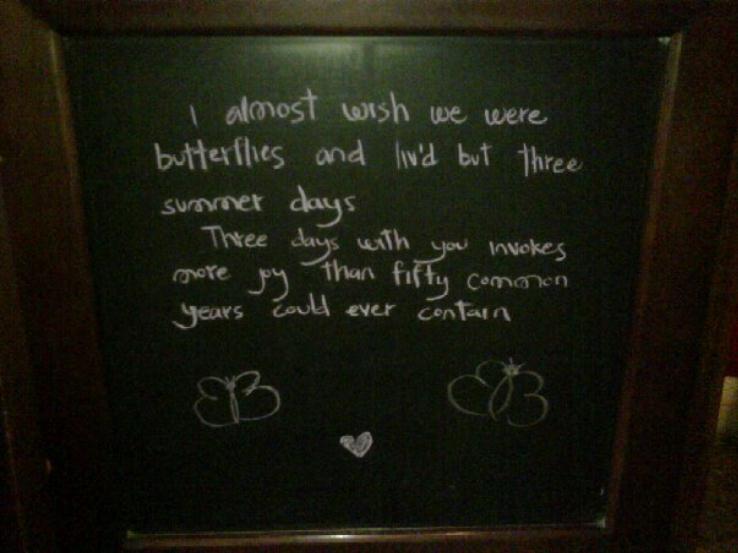 I almost wish we were
butterflies and liv'd but three
summer days
Three days with you invokes
more joy than fifty common
years could ever contain